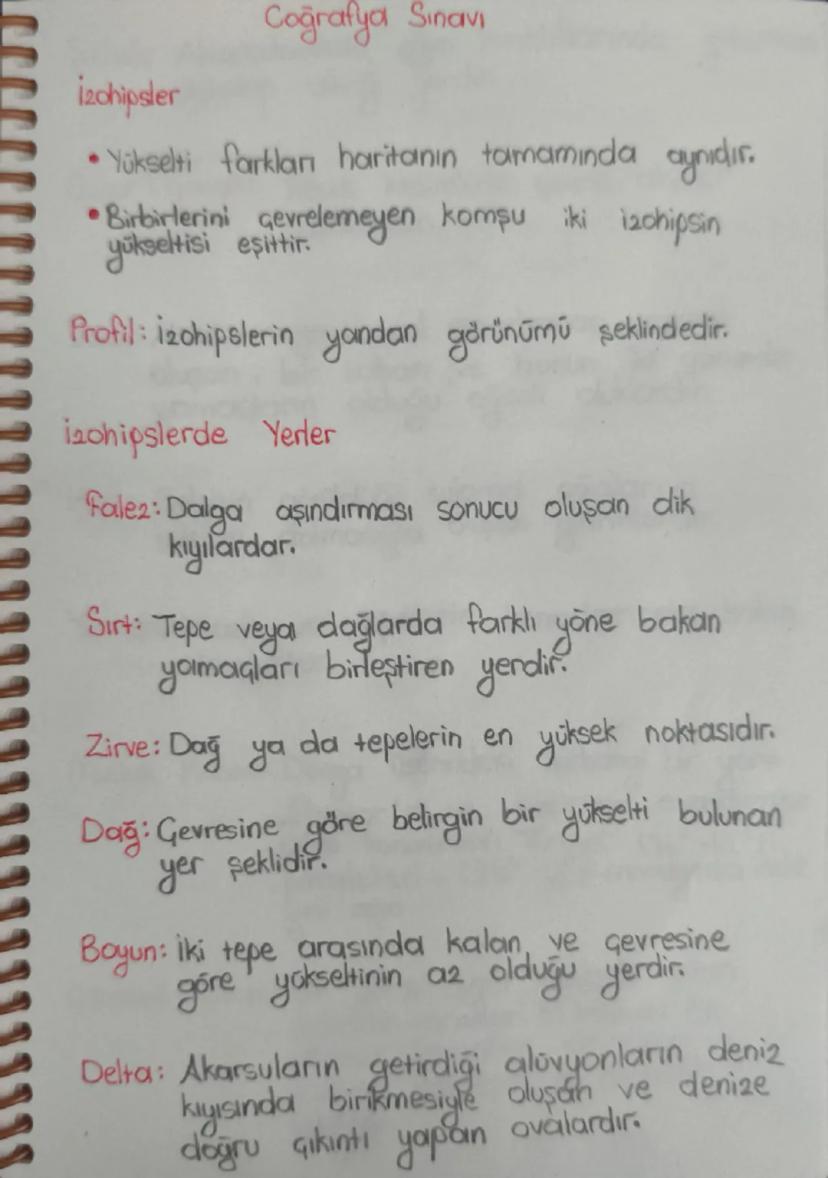 Coğrafya Sınavı
İzohipsler
• Yükselti farkları haritanın tamamında aynıdır.
• Birbirlerini çevrelemeyen komşu iki izohipsin
yükseltisi eşittir.
Profil: İzohipslerin yandan görünümü şeklindedir.
İzohipslerde Yerler
Falez: Dalga aşındırması sonucu oluşan dik
kıyılardar.
Sırt: Tepe veya dağlarda farklı yöne bakan
yamaçları birleştiren yerdir.
Zirve: Dağ ya da tepelerin en yüksek noktasıdır.
Dağ: Çevresine göre belirgin bir yükselti bulunan
yer şeklidir.
Boyun: İki tepe arasında kalan ve çevresine
göre yükseltinin az olduğu yerdir.
Delta: Akarsuların getirdiği alüvyonların deniz
kıyısında birikmesiyle oluşan ve denize
doğru çıkıntı yapan ovalardır.